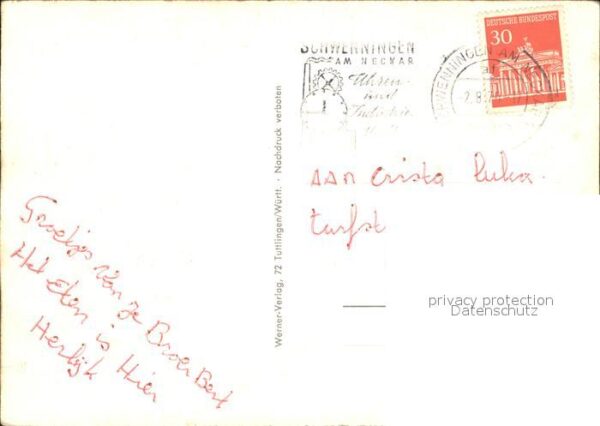 SCHWENNINGEN
AM NECKAR
Uhren-
und
Industrie
DEUTSCHE BUNDESPOST
30
WENNINGEN AM
Werner-Verlag, 72 Tuttlingen/Württ. · Nachdruck verboten
AAN Crista
turfst
Groetjes van je Broer Bert
Het Eten is Hier
Herlijk
privacy protection
Datenschutz